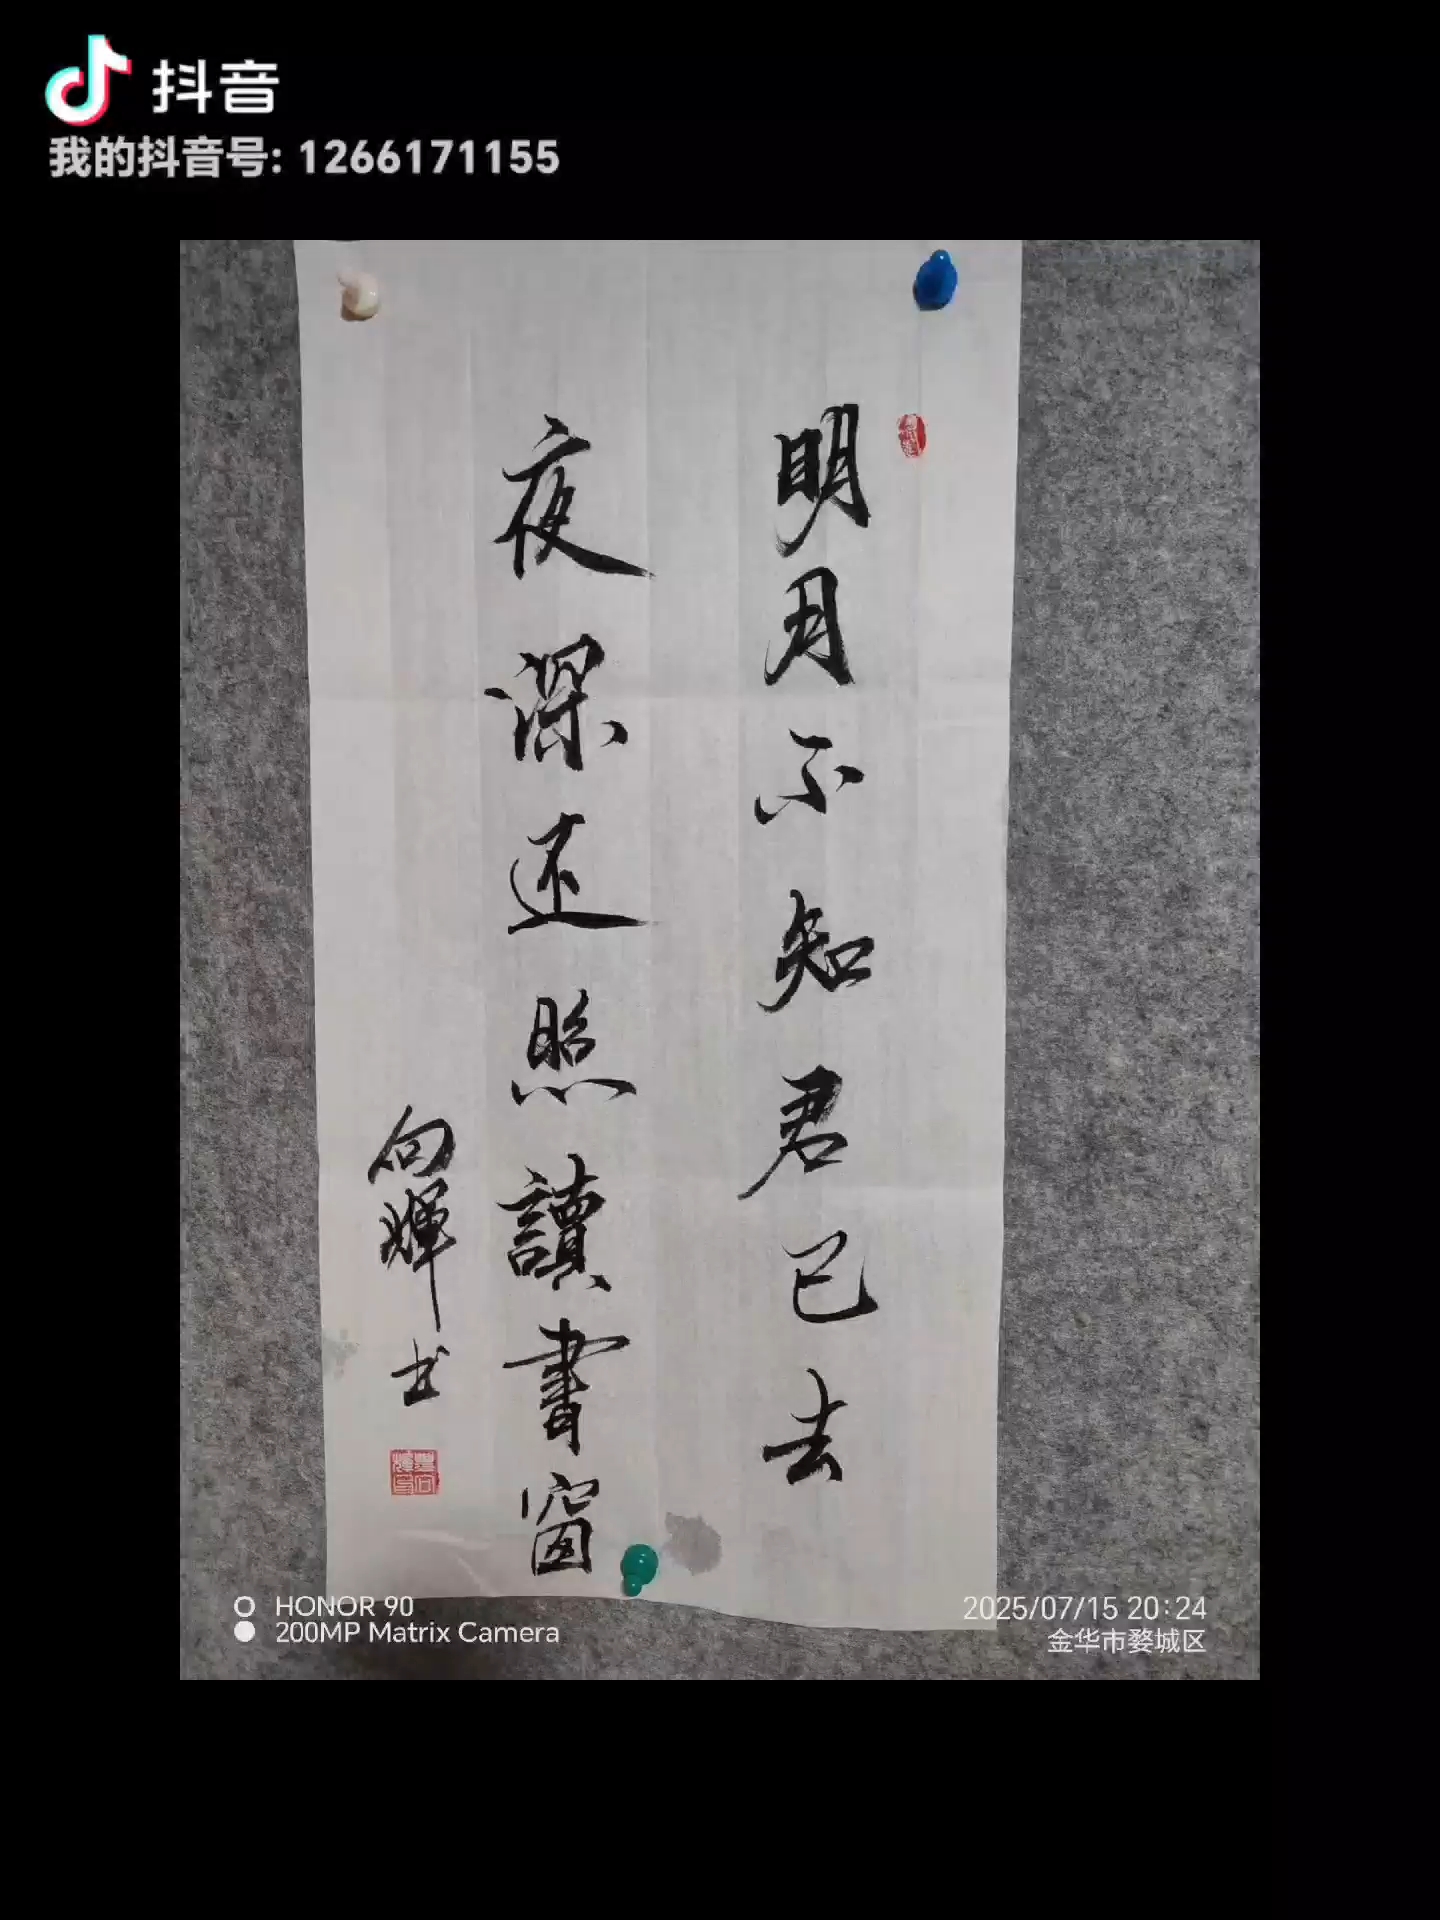 抖音
我的抖音号: 1266171155
明月不知君已去
夜深还照讀書窗
向輝书
HONOR 90
200MP Matrix Camera
2025/07/15 20:24
金华市婺城区